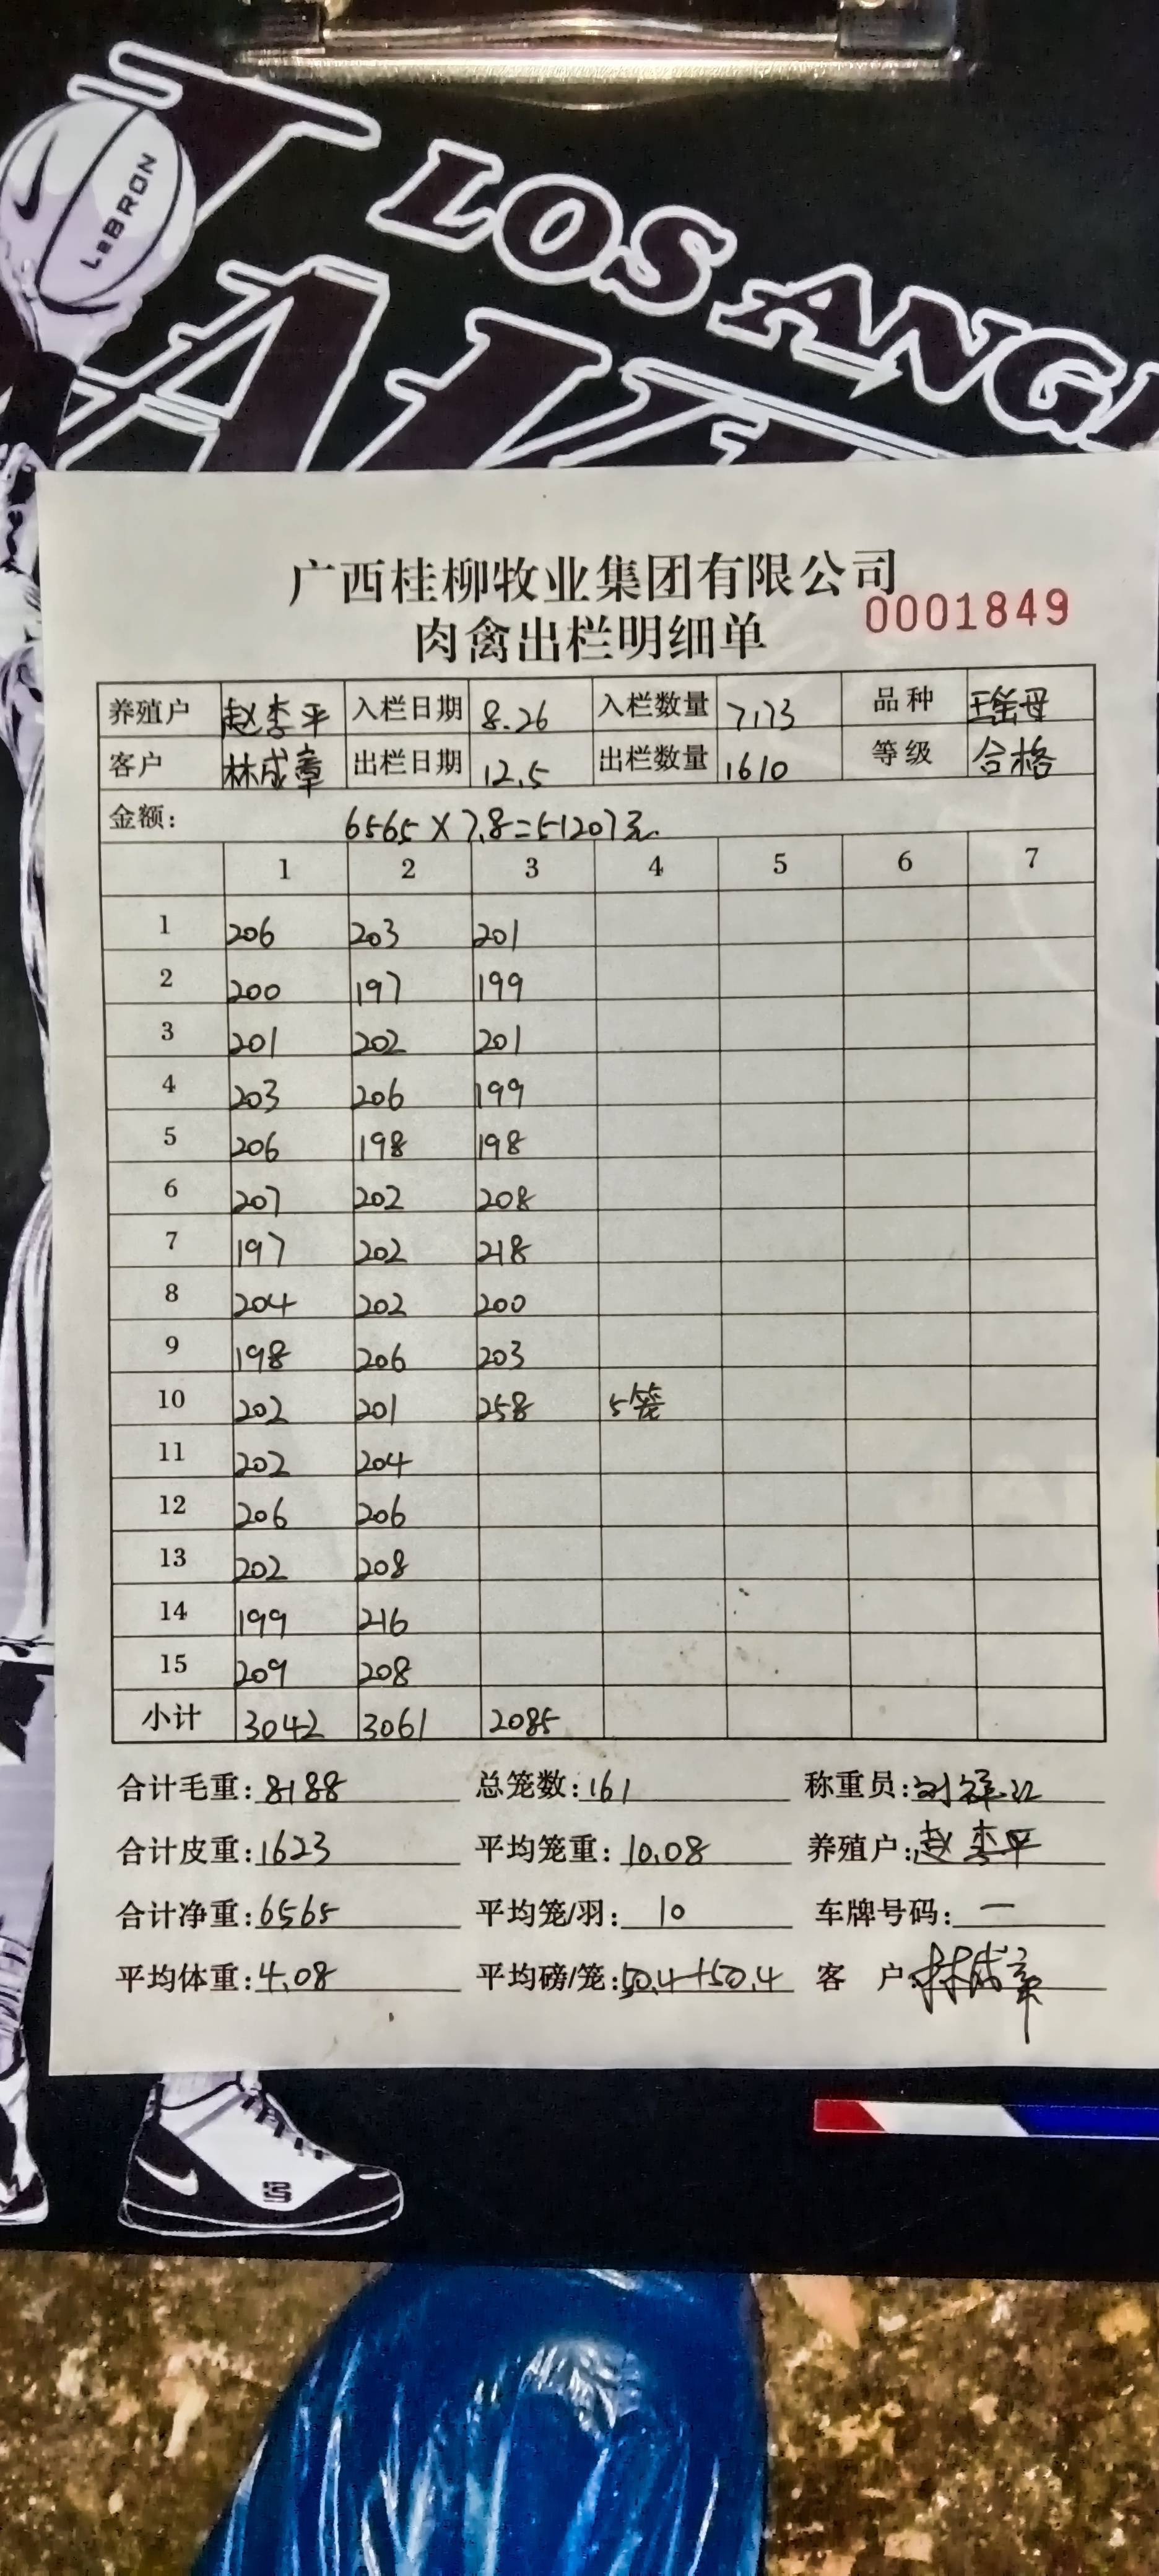 LeBRON
LOS ANG
广西桂柳牧业集团有限公司
0001849
肉禽出栏明细单
养殖户 赵李平 入栏日期 8.26 入栏数量 7173 品种 瑶母
客户 林成章 出栏日期 12.5 出栏数量 1610 等级 合格
金额: 6565×7.8=51207元
1 2 3 4 5 6 7
1 206 203 201
2 200 197 199
3 201 202 201
4 203 206 199
5 206 198 198
6 207 202 208
7 197 202 218
8 204 202 200
9 198 206 203
10 202 201 258 5笼
11 202 204
12 206 206
13 202 208
14 199 216
15 209 208
小计 3042 3061 2085
合计毛重:8188 总笼数:161 称重员:
合计皮重:1623 平均笼重:10.08 养殖户:赵李平
合计净重:6565 平均笼/羽:10 车牌号码:一
平均体重:4.08 平均磅/笼:50.4+50.4 客 户:林成章